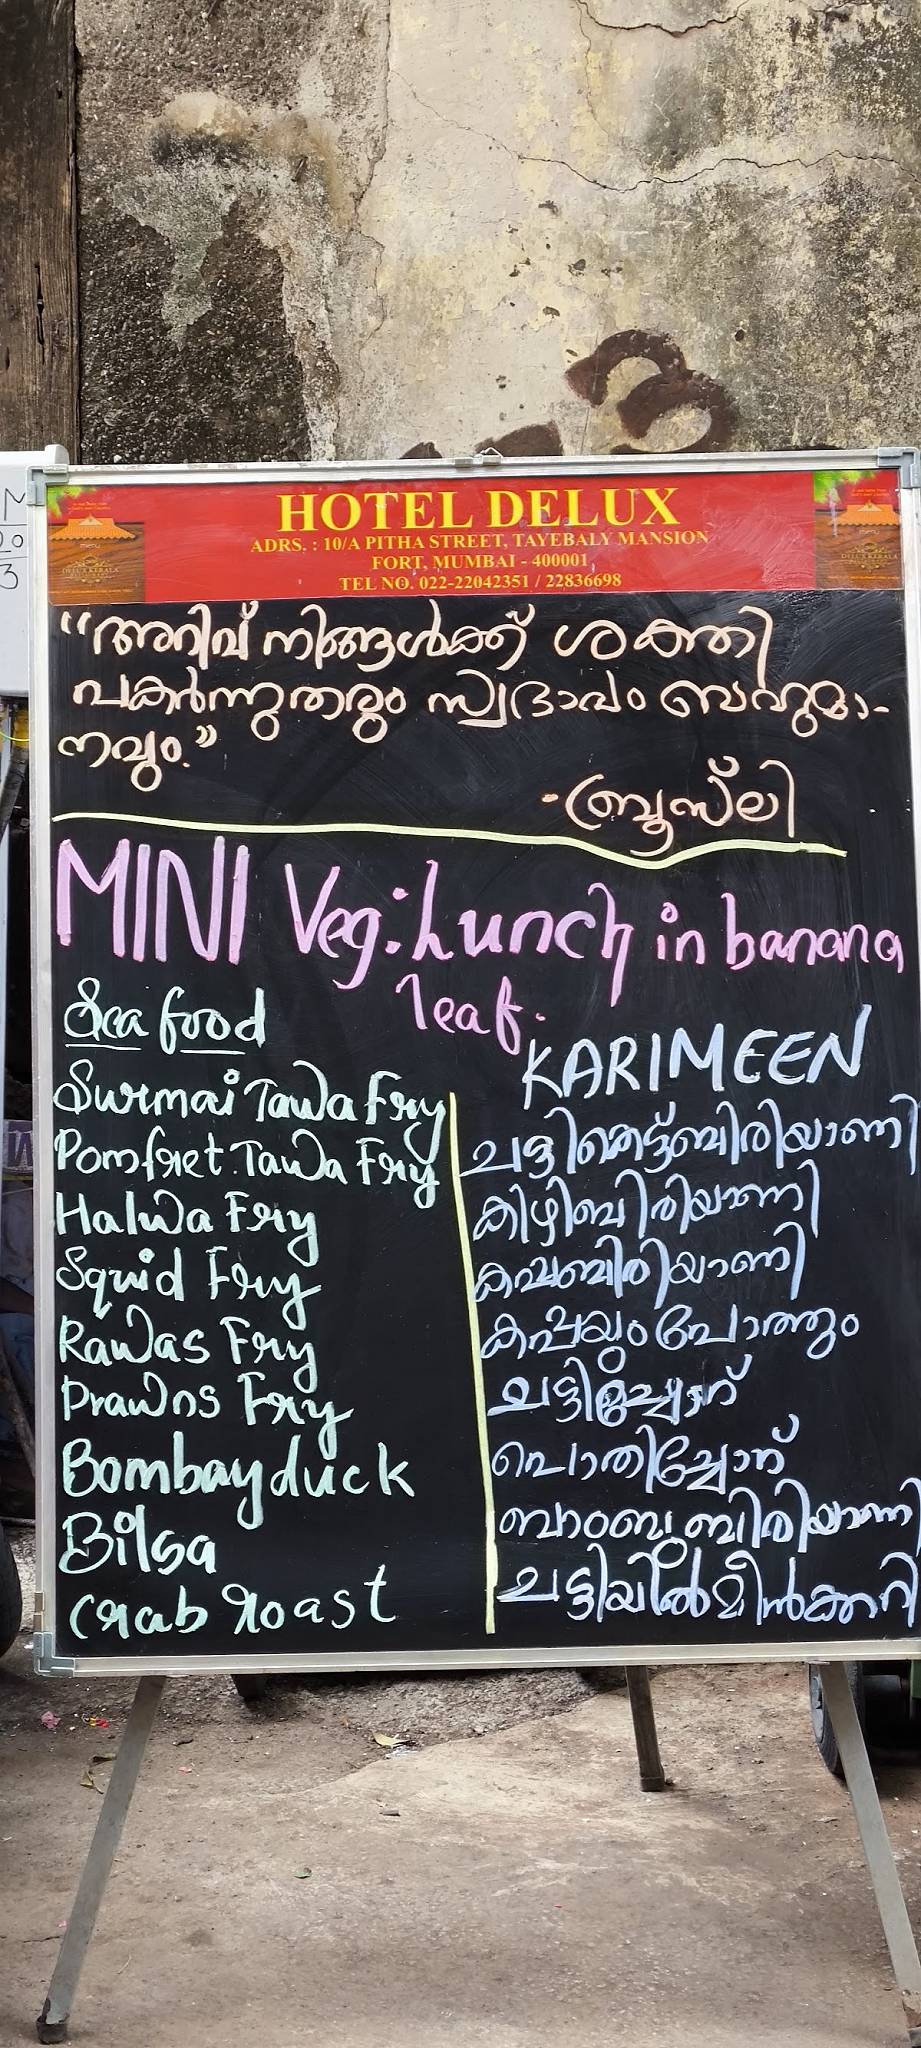 HOTEL DELUX
ADRS. : 10/A PITHA STREET, TAYEBALY MANSION
FORT, MUMBAI - 400001
TEL NO. 022-22042351 / 22836698
“അറിവ് നിങ്ങൾക്ക് ശക്തി
പകർന്നുതരും സ്വഭാവം ബഹുമാ-
നവും.”
- ബ്രൂസ്‌ലി
MINI Veg: Lunch in banana
leaf.
Sea food
Surmai Tawa Fry
Pomfret. Tawa Fry
Halwa Fry
Squid Fry
Rawas Fry
Prawns Fry
Bombay duck
Bilsa
Crab roast
KARIMEEN
ബിരിയാണി
കിഴിബിരിയാണി
കപ്പബിരിയാണി
കപ്പയും പോത്തും
പൊതിച്ചോറ്
ബാംബൂ ബിരിയാണി
ചട്ടിയിൽമീൻക്കറി